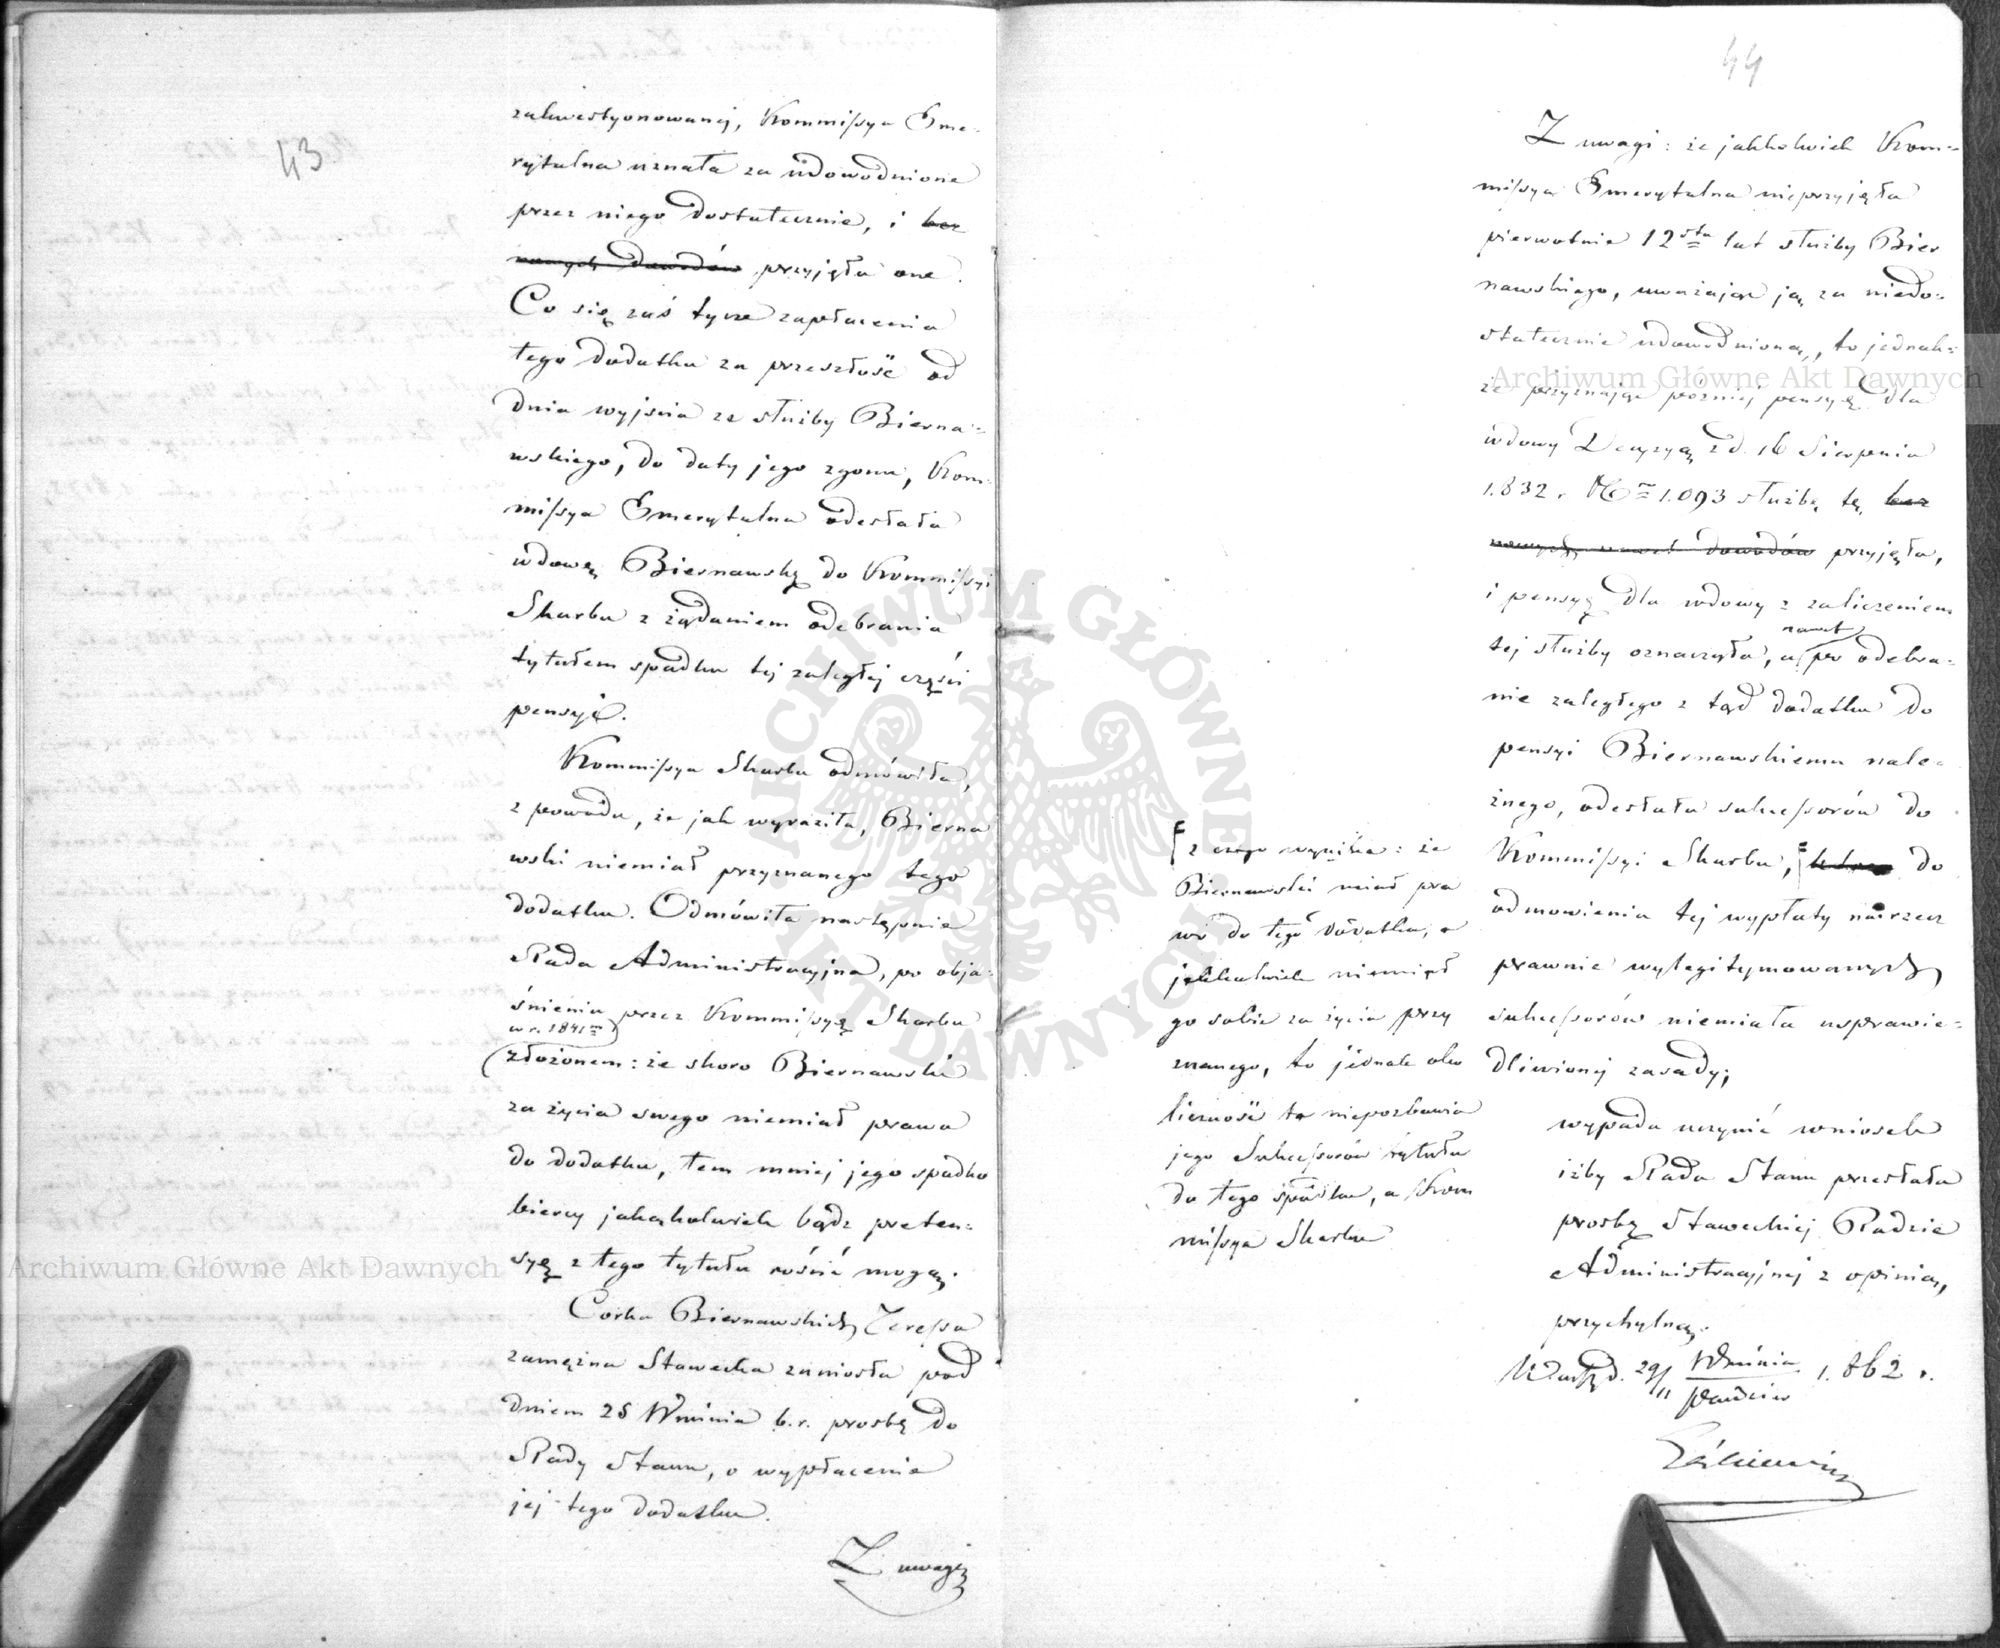 43
zakwestyonowanej, Kommissya Eme-
rytalna uznała za udowodnione
przez niego dostatecznie, i bez
nowych dowodów przyjęła one.
Co się zaś tycze zapłacenia
tego dodatku za przeszłość od
dnia wyjścia ze służby Bierna-
wskiego, do daty jego zgonu, Kom-
missya Emerytalna odesłała
wdowę Biernawską do Kommissyi
Skarbu z żądaniem odebrania
tytułem spadku tej zaległej części
pensyi.
Kommissya Skarbu odmówiła,
z powodu, że jak wyraziła, Bierna
wski niemiał przyznanego tego
dodatku. Odmówiła następnie
Rada Administracyjna, po obja-
śnieniu przez Kommissyę Skarbu
w r. 1841m
złożonem: że skoro Biernawski
za życia swego niemiał prawa
do dodatku, tem mniej jego spadko
biercy jakąkolwiek bądź preten-
syę z tego tytułu rościć mogą.
Corka Biernawskich Teressa
zamężna Stawecka zaniosła pod
dniem 25 Wrnśnia b.r. prosbę do
Rady Stanu, o wypłacenie
jej tego dodatku.
Z uwagi
44
Z uwagi: że jakkolwiek Kom-
missya Emerytalna nieprzyjęła
pierwotnie 12stu lat służby Bier
nawskiego, uważając ją za niedo-
statecznie udowodnioną, to jednak-
że przyznając później pensyę dla
wdowy Decyzyą z d. 16 Sierpnia
1832 r. No 1.093 służbę tę bez
nowych nawet dowodów przyjęła,
i pensyę dla wdowy z zaliczeniem
nawet
tej służby oznaczyła, a po odebra-
nie zaległego z tąd dodatku do
pensyi Biernawskiemu nale-
żnego, odesłała sukcessorów do
Kommissyi Skarbu, do
odmowienia tej wypłaty na rzecz
prawnie wylegitymowanych
sukcessorów niemiała usprawie-
dliwionej zasady;
z czego wynika: że
Biernawski miał pra
wo do tego dodatku, a
jakkolwiek niemiał
go sobie za życia przy
znanego, to jednak oko
liczność ta niepozbawia
jego Sukcessorów tytułu
do tego spadku, a Kom
missya Skarbu
wypada uczynić wniosek
iżby Rada Stanu przesłała
prosbę Staweckiej Radzie
Administracyjnej z opinią,
przychylną.
29/11 Wrśnia 1.862 r.
Paździer
Archiwum Główne Akt Dawnych
Archiwum Główne Akt Dawnych
ARCHIWUM GŁÓWNE AKT DAWNYCH